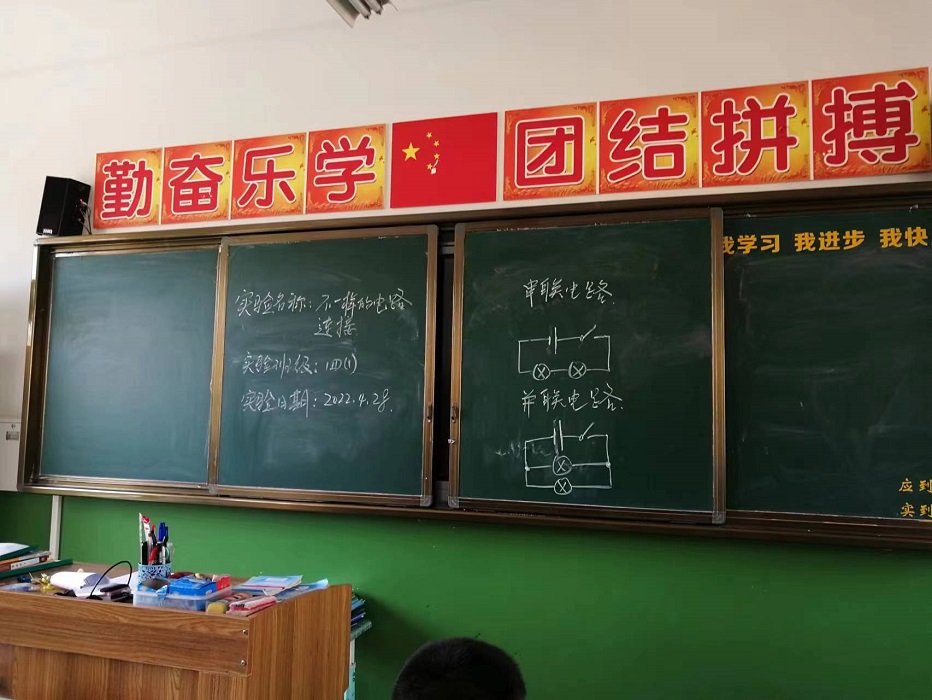 勤奋乐学 团结拼搏
实验名称：不一样的电路
连接
实验班级：四(1)
实验日期：2022.4.28.
串联电路.
并联电路.
我学习 我进步 我快
应到
实到